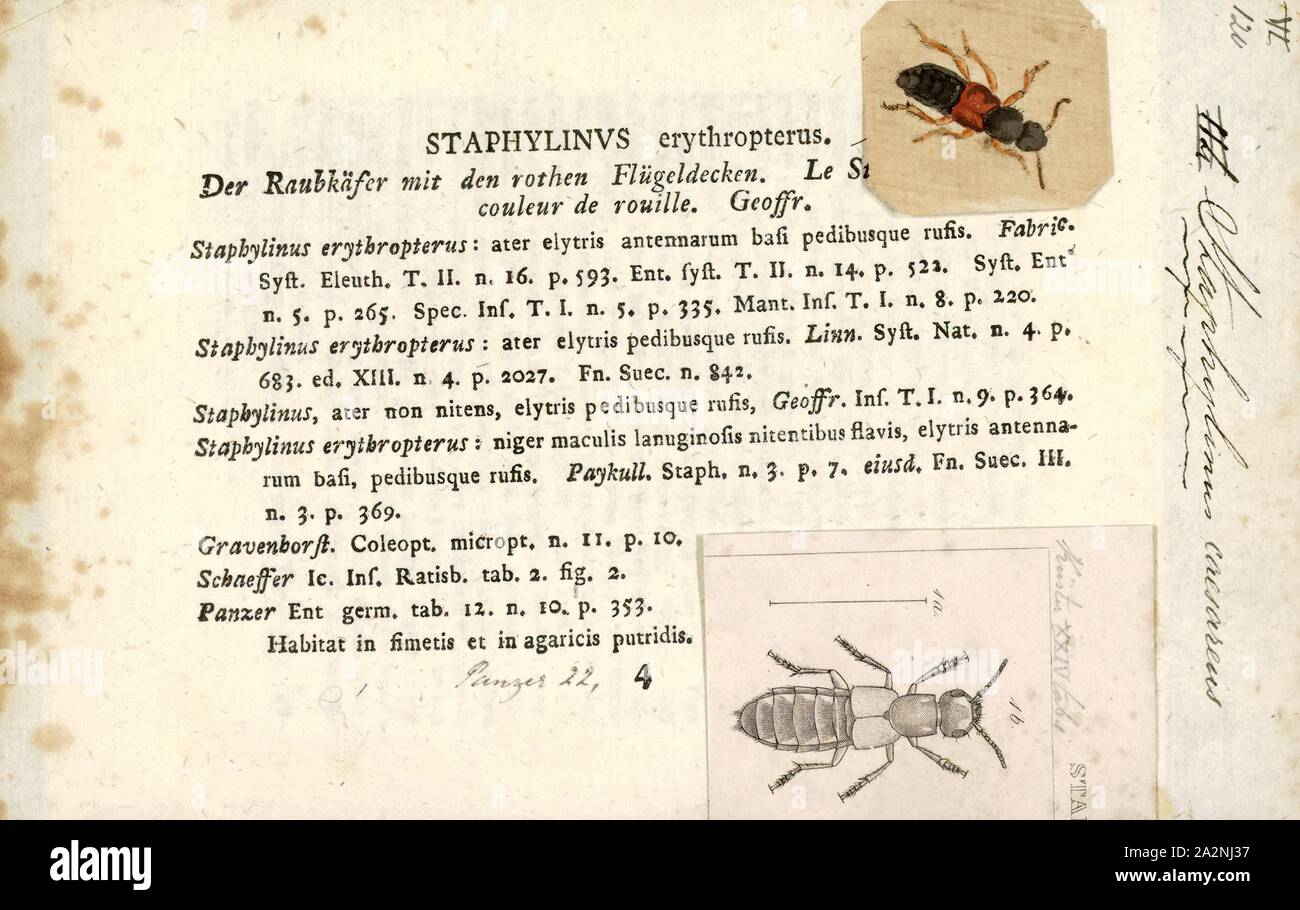 STAPHYLINVS erythropterus.
Der Raubkäfer mit den rothen Flügeldecken. Le St
couleur de rouille. Geoffr.
Staphylinus erythropterus: ater elytris antennarum baſi pedibusque rufis. Fabric.
Syſt. Eleuth. T. II. n. 16. p. 593. Ent. ſyſt. T. II. n. 14. p. 522. Syſt. Ent
n. 5. p. 265. Spec. Inſ. T. I. n. 5. p. 335. Mant. Inſ. T. I. n. 8. p. 220.
Staphylinus erythropterus: ater elytris pedibusque rufis. Linn. Syſt. Nat. n. 4. p.
683. ed. XIII. n. 4. p. 2027. Fn. Suec. n. 842.
Staphylinus, ater non nitens, elytris pedibusque rufis, Geoffr. Inſ. T. I. n. 9. p. 364.
Staphylinus erythropterus: niger maculis lanuginoſis nitentibus flavis, elytris antenna-
rum baſi, pedibusque rufis. Paykull. Staph. n. 3. p. 7. eiusd. Fn. Suec. III.
n. 3. p. 369.
Gravenhorſt. Coleopt. micropt. n. 11. p. 10.
Schaeffer Ic. Inſ. Ratisb. tab. 2. fig. 2.
Panzer Ent germ. tab. 12. n. 10. p. 353.
Habitat in fimetis et in agaricis putridis.
Panzer 22, 4
VI
120
Staphylinus caesareus
XXIV
1a.
1b
STA
alamy
Image ID: S2A2NJ37
www.alamy.com